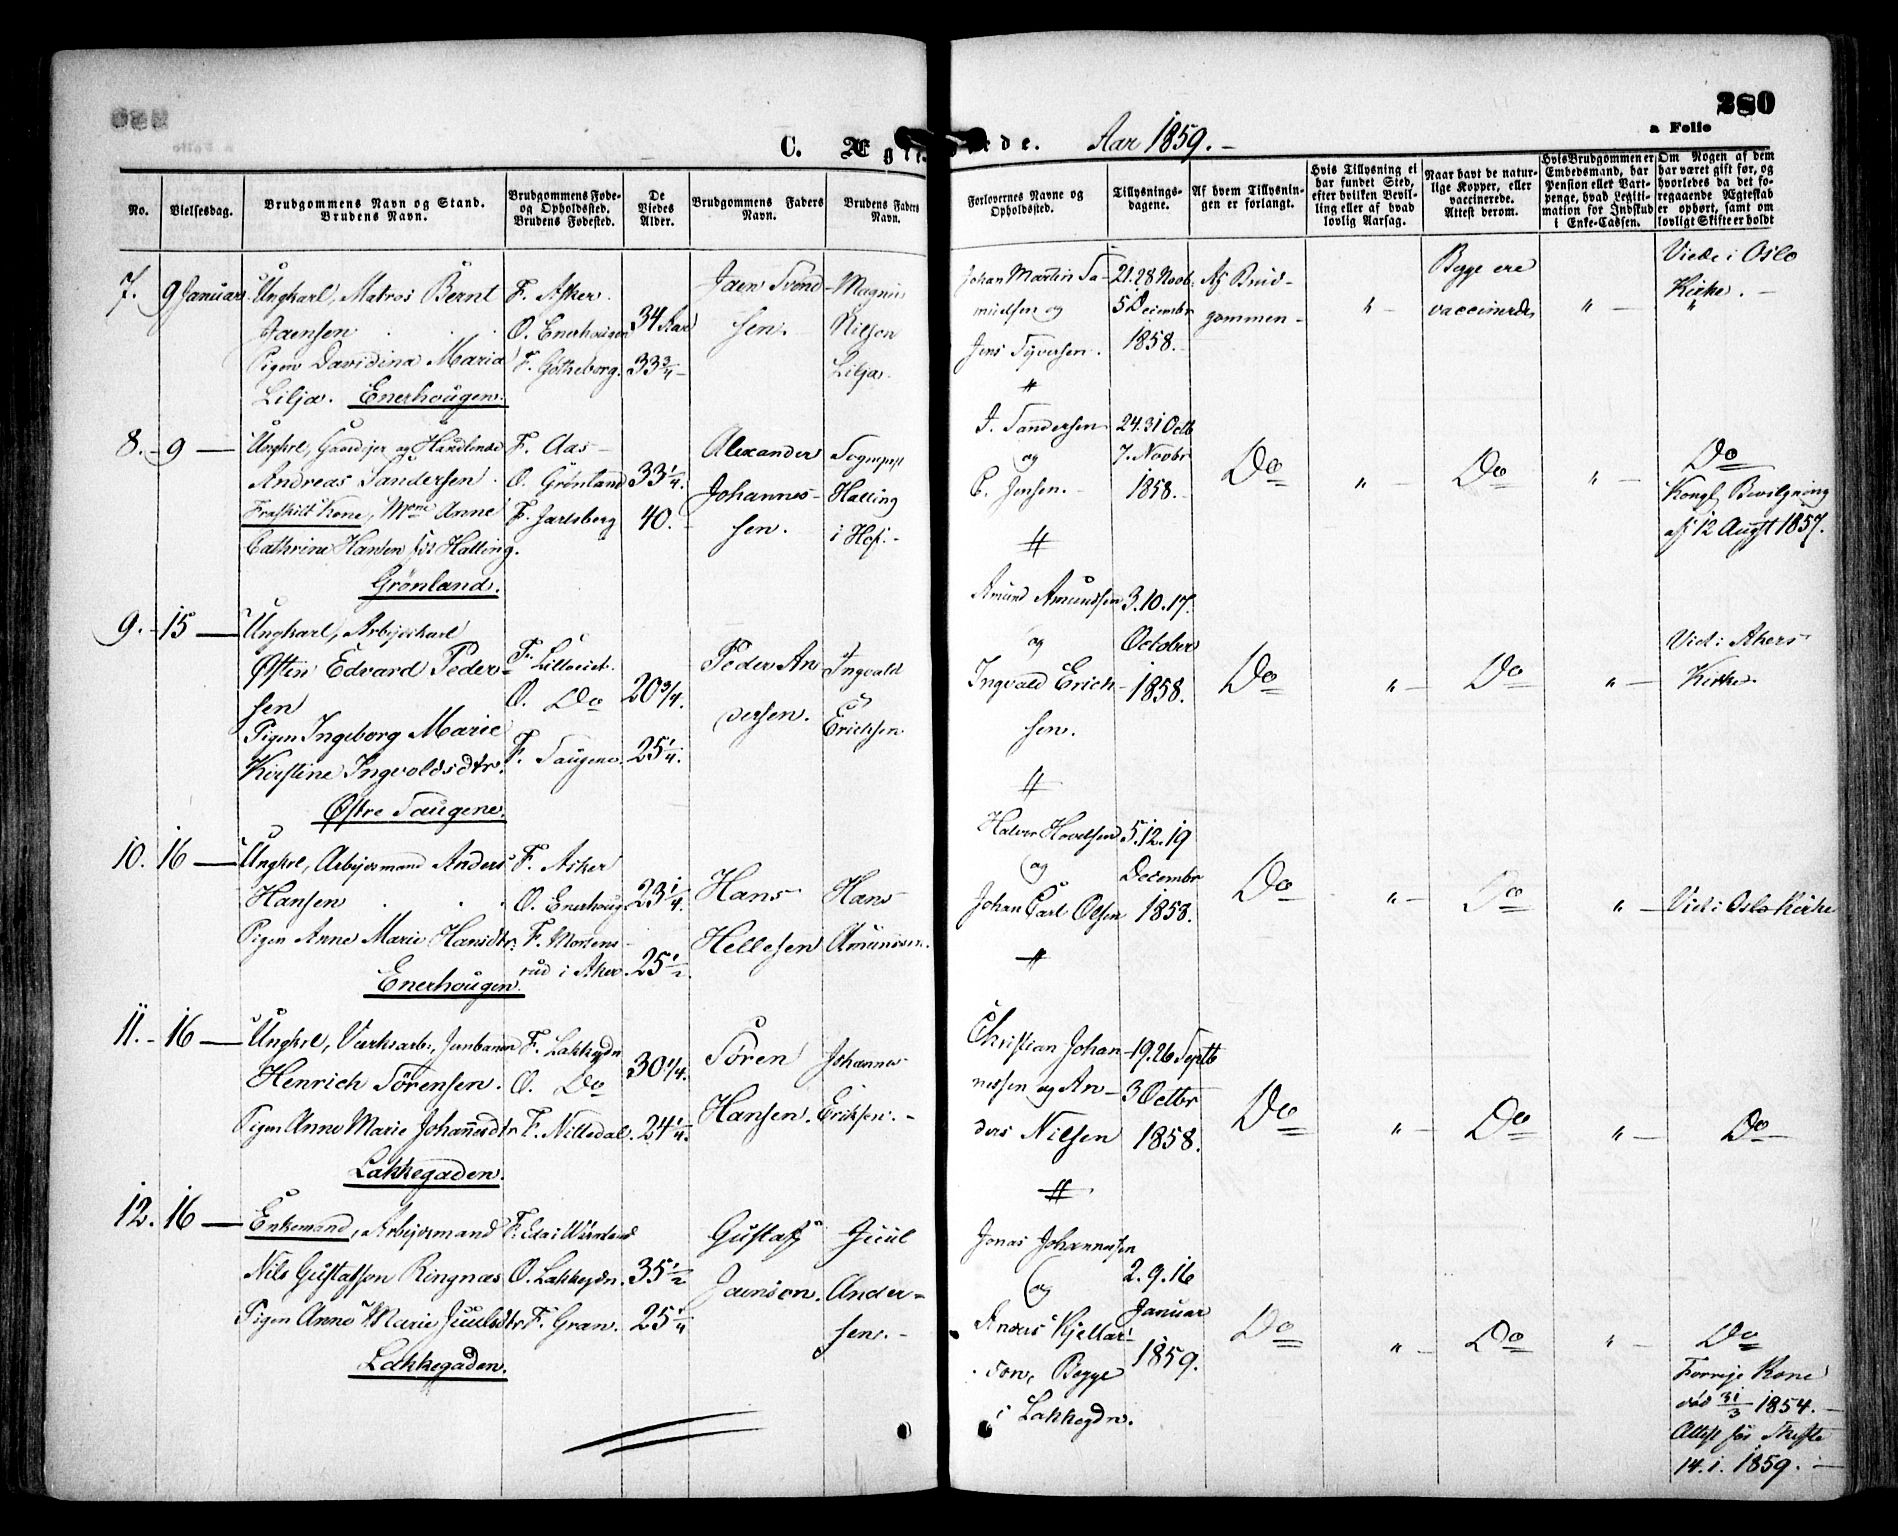 280
a Folio
C. Ægteviede. Aar 1859.-
No.
Vielsesdag.
Brudgommens Navn og Stand.
Brudens Navn.
Brudgommens Føde-
og Opholdsted.
Brudens Fødested.
De
Viedes
Alder.
Brudgommens Faders
Navn.
Brudens Faders
Navn.
Forlovernes Navne og
Opholdsted.
Tillysnings-
dagene.
Af hvem Tillysnin-
gen er forlangt.
Hvis Tillysning ei
har fundet Sted,
efter hvilken Bevil-
ling eller af hvad
lovlig Aarsag.
Naar havt de natur-
lige Kopper, eller
vaccinerede.
Attest derom.
Hvis Brudgommen er
Embedsmand, har
Pension eller Vart-
penge, hvad Legiti-
mation for Indskud
i Enke-Cassen.
Om Nogen af dem
har været gift før, og
hvorledes da det fo-
regaaende Ægteskab
er ophørt, samt om
lovligt Skifte er holdt
7. 9 Januar
Ungkarl, Matros Bernt
Jaensen
Pigen Davidina Maria
Lilja. Enerhougen.
F. Asker.
O. Enerhougen
F. Götheborg.
34 Aar
33¾
Jaen Svend-
sen.
Magnus
Nilson
Lilja.
Johan Martin Sa-
muelsen og
Jens Syversen.
21.28 Novb:
5 Decembr
1858.
Af Brud-
gommen-
"
Begge ere
vaccinerede
"
Viede i Oslo
Kirke.
8. 9
Ungkrl, Gaardejer og Handlende
Andreas Sandersen.
Fraskilt Kone, Mme Anne
Cathrine Hansen født Halling.
Grönland.
F. Aas
O. Grönland
F. Jarlsberg
33¼.
40.
Alexander
Johannes-
sen.
Sogneprest
Halling
i Hof.
J. Sandersen
og
C. Jensen.
24.31 Octb
7. Novbr
1858.
Do
"
Do
"
Do
Kongl. Bevilgning
af 12 Augst 1857.
9. 15
Ungkarl, Arbejdskarl
Østen Edvard Peder-
sen
Pigen Ingeborg Marie
Kirstine Ingvoldsdtr.
Østre Saugene.
F. Lilleviet.
O. Do
F. Saugene.
20¾.
25¼.
Peder An
dersen.
Ingvald
Erichsen
Amund Amundsen
og
Ingvald Erich-
sen.
3.10.17.
October
1858.
Do
"
Do
"
Vied i Akers
Kirke.
10. 16
Ungkrl, Arbejdsmand Anders
Hansen
Pigen Anne Marie Hansdtr.
Enerhougen.
F. Asker
O. Enerhoug.
F. Mortens-
rud i Aker.
23¼.
25½.
Hans
Hellesen
Hans
Amundsen.
Halvor Hovelsen
og
Johan Carl Olsen
5.12.19
Decembr
1858.
Do
"
Do
"
Vied i Oslo Kirke
11. 16
Ungkrl, Værksarb:, Jernbanen
Henrich Sörensen.
Pigen Anne Marie Johannesdtr
Lakkegaden.
F. Lakkegdn
O. Do
F. Nittedal.
30¼.
24¼.
Sören
Hansen.
Johannes
Eriksen.
Christian Johan-
nessen og An-
ders Nilsen
19.26 Septb
3 Octbr
1858.
Do
"
Do
"
Do
12. 16
Enkemand, Arbejdsmand
Nils Gustafson Ringnæs
Pigen Anne Marie Juulsdtr
Lakkegaden.
F. Eda i Wermland
O. Lakkegdn.
F. Gran.
35½
25¼
Gustaf
Jaenson.
Juul
Ander-
sen.
Jonas Johannesen
og
Anders Kjellar-
son, Begge
i Lakkegdn.
2.9.16
Januar
1859.
Do
"
Do
"
Do
Forrige Kone
død 31/3 1854.
Attest for Skifte
14.1.1859.